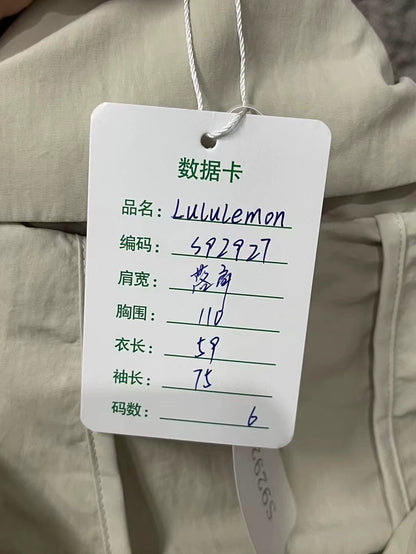 数据卡
品名: Lululemon
编码: S92927
肩宽:
胸围: 110
衣长: 59
袖长: 75
码数: 6